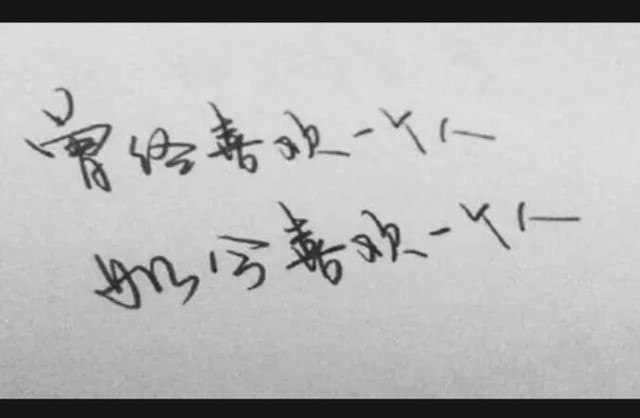 曾经喜欢一个人
现在喜欢一个人